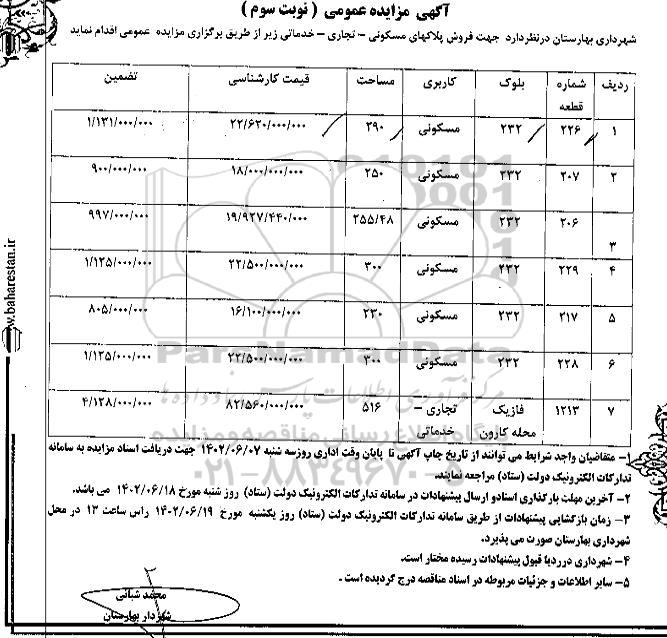 آگهی مزایده عمومی ( نوبت سوم )
شهرداری بهارستان درنظردارد جهت فروش پلاکهای مسکونی – تجاری – خدماتی زیر از طریق برگزاری مزایده عمومی اقدام نماید
ردیف شماره قطعه بلوک کاربری مساحت قیمت کارشناسی تضمین
۱ ۲۲۶ ۲۳۲ مسکونی ۲۹۰ ۲۲/۶۲۰/۰۰۰/۰۰۰ ۱/۱۳۱/۰۰۰/۰۰۰
۲ ۲۰۷ ۲۳۲ مسکونی ۲۵۰ ۱۸/۰۰۰/۰۰۰/۰۰۰ ۹۰۰/۰۰۰/۰۰۰
۳ ۲۰۶ ۲۳۲ مسکونی ۲۵۵/۴۸ ۱۹/۹۲۷/۴۴۰/۰۰۰ ۹۹۷/۰۰۰/۰۰۰
۴ ۲۲۹ ۲۳۲ مسکونی ۳۰۰ ۲۲/۵۰۰/۰۰۰/۰۰۰ ۱/۱۲۵/۰۰۰/۰۰۰
۵ ۲۱۷ ۲۳۲ مسکونی ۲۳۰ ۱۶/۱۰۰/۰۰۰/۰۰۰ ۸۰۵/۰۰۰/۰۰۰
۶ ۲۲۸ ۲۳۲ مسکونی ۳۰۰ ۲۲/۵۰۰/۰۰۰/۰۰۰ ۱/۱۲۵/۰۰۰/۰۰۰
۷ ۱۲۱۳ فازیک محله کارون تجاری – خدماتی ۵۱۶ ۸۲/۵۶۰/۰۰۰/۰۰۰ ۴/۱۲۸/۰۰۰/۰۰۰
۱– متقاضیان واجد شرایط می توانند از تاریخ چاپ آگهی تا پایان وقت اداری روزسه شنبه ۱۴۰۲/۰۶/۰۷ جهت دریافت اسناد مزایده به سامانه
تدارکات الکترونیک دولت (ستاد) مراجعه نمایند.
۲– آخرین مهلت بارگذاری اسنادو ارسال پیشنهادات در سامانه تدارکات الکترونیک دولت (ستاد) روز شنبه مورخ ۱۴۰۲/۰۶/۱۸ می باشد.
۳– زمان بازگشایی پیشنهادات از طریق سامانه تدارکات الکترونیک دولت (ستاد) روز یکشنبه مورخ ۱۴۰۲/۰۶/۱۹ راس ساعت ۱۳ در محل
شهرداری بهارستان صورت می پذیرد.
۴– شهرداری درردیا قبول پیشنهادات رسیده مختار است.
۵– سایر اطلاعات و جزئیات مربوطه در اسناد مناقصه درج گردیده است .
محمد شبانی
شهردار بهارستان
www.baharestan.ir
ParsNamadData
۰۲۱-۸۸۳۴۹۶۷۰-۵